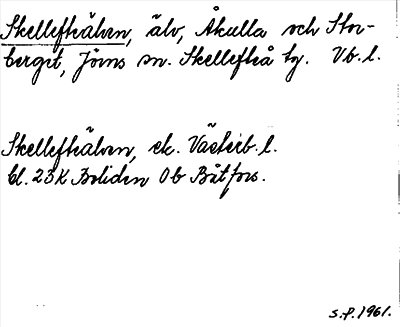 Skellefteälven, älv, Åkulla och Stor-
berget, Jörns sn. Skellefteå tg. Vb. l.
Skellefteälven, ek. Västerb. l.
bl. 23K Boliden 0b Båtfors.
S.P. 1961.